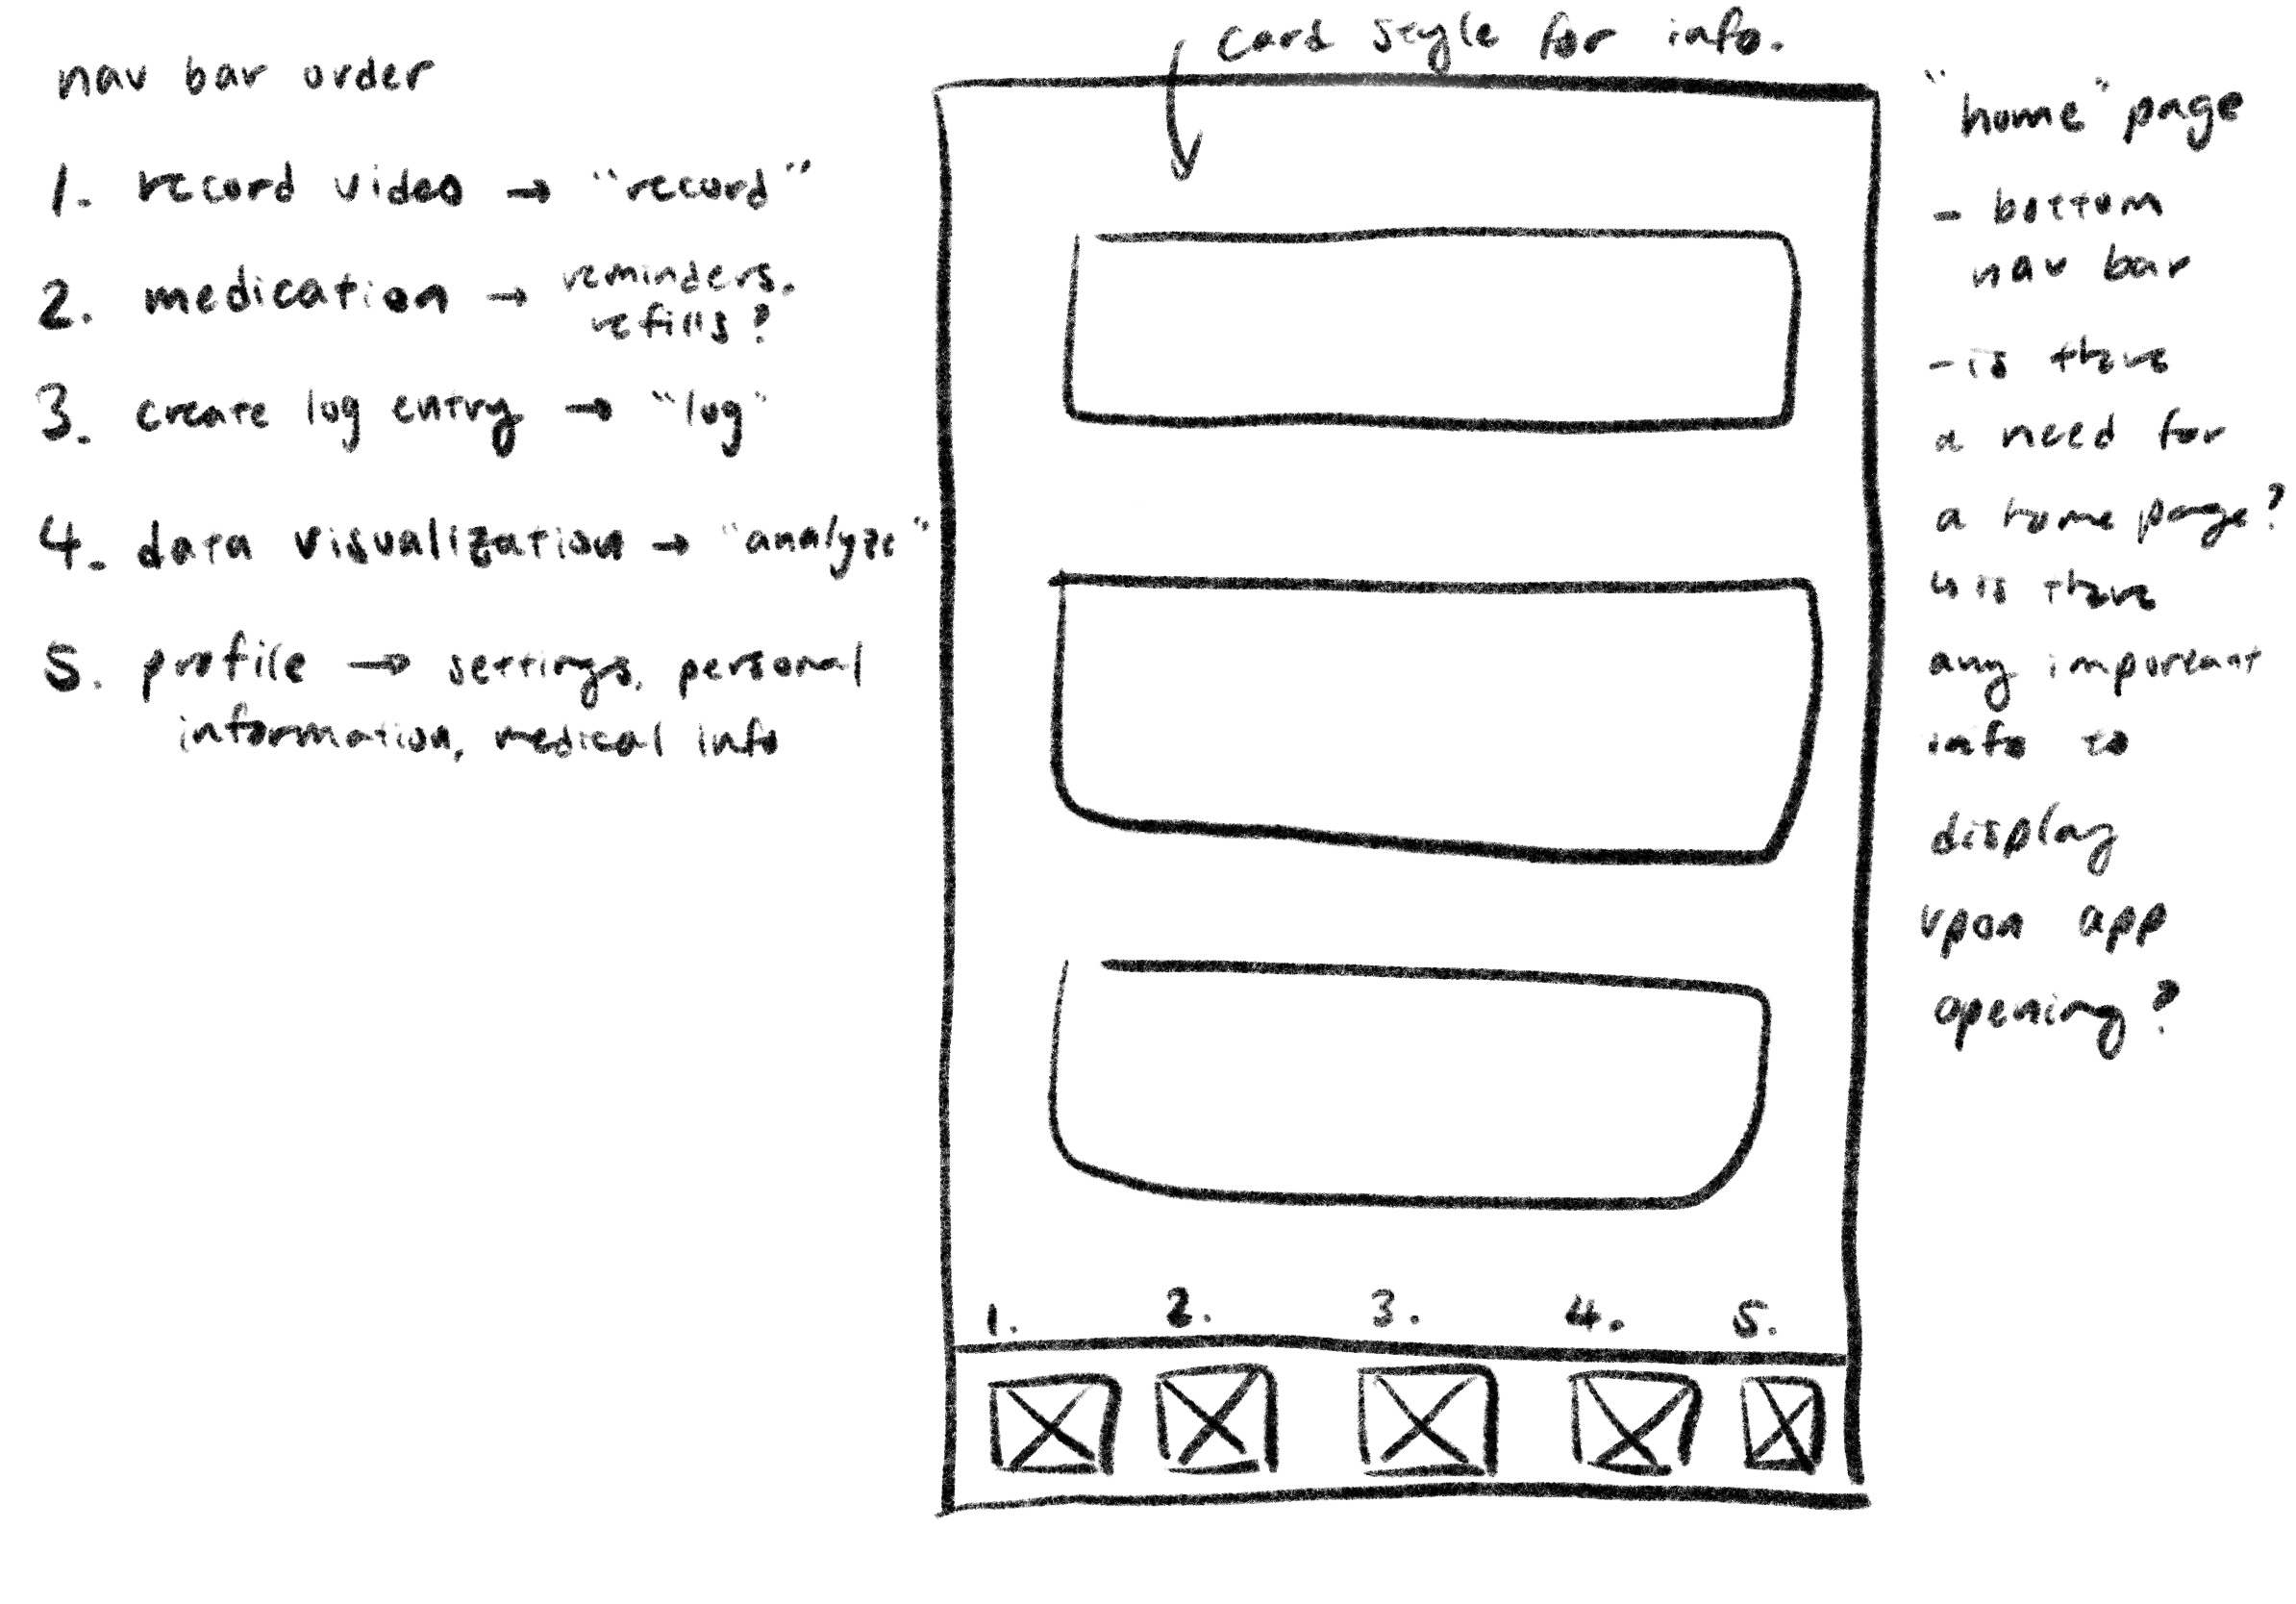 nav bar order
1. record video → "record"
2. medication → reminders.
refills?
3. create log entry → "log"
4. data visualization → "analyze"
5. profile → settings, personal
information, medical info
card style for info.
1. 2. 3. 4. 5.
"home" page
- bottom
nav bar
- is there
a need for
a home page?
↳ is there
any important
info to
display
upon app
opening?